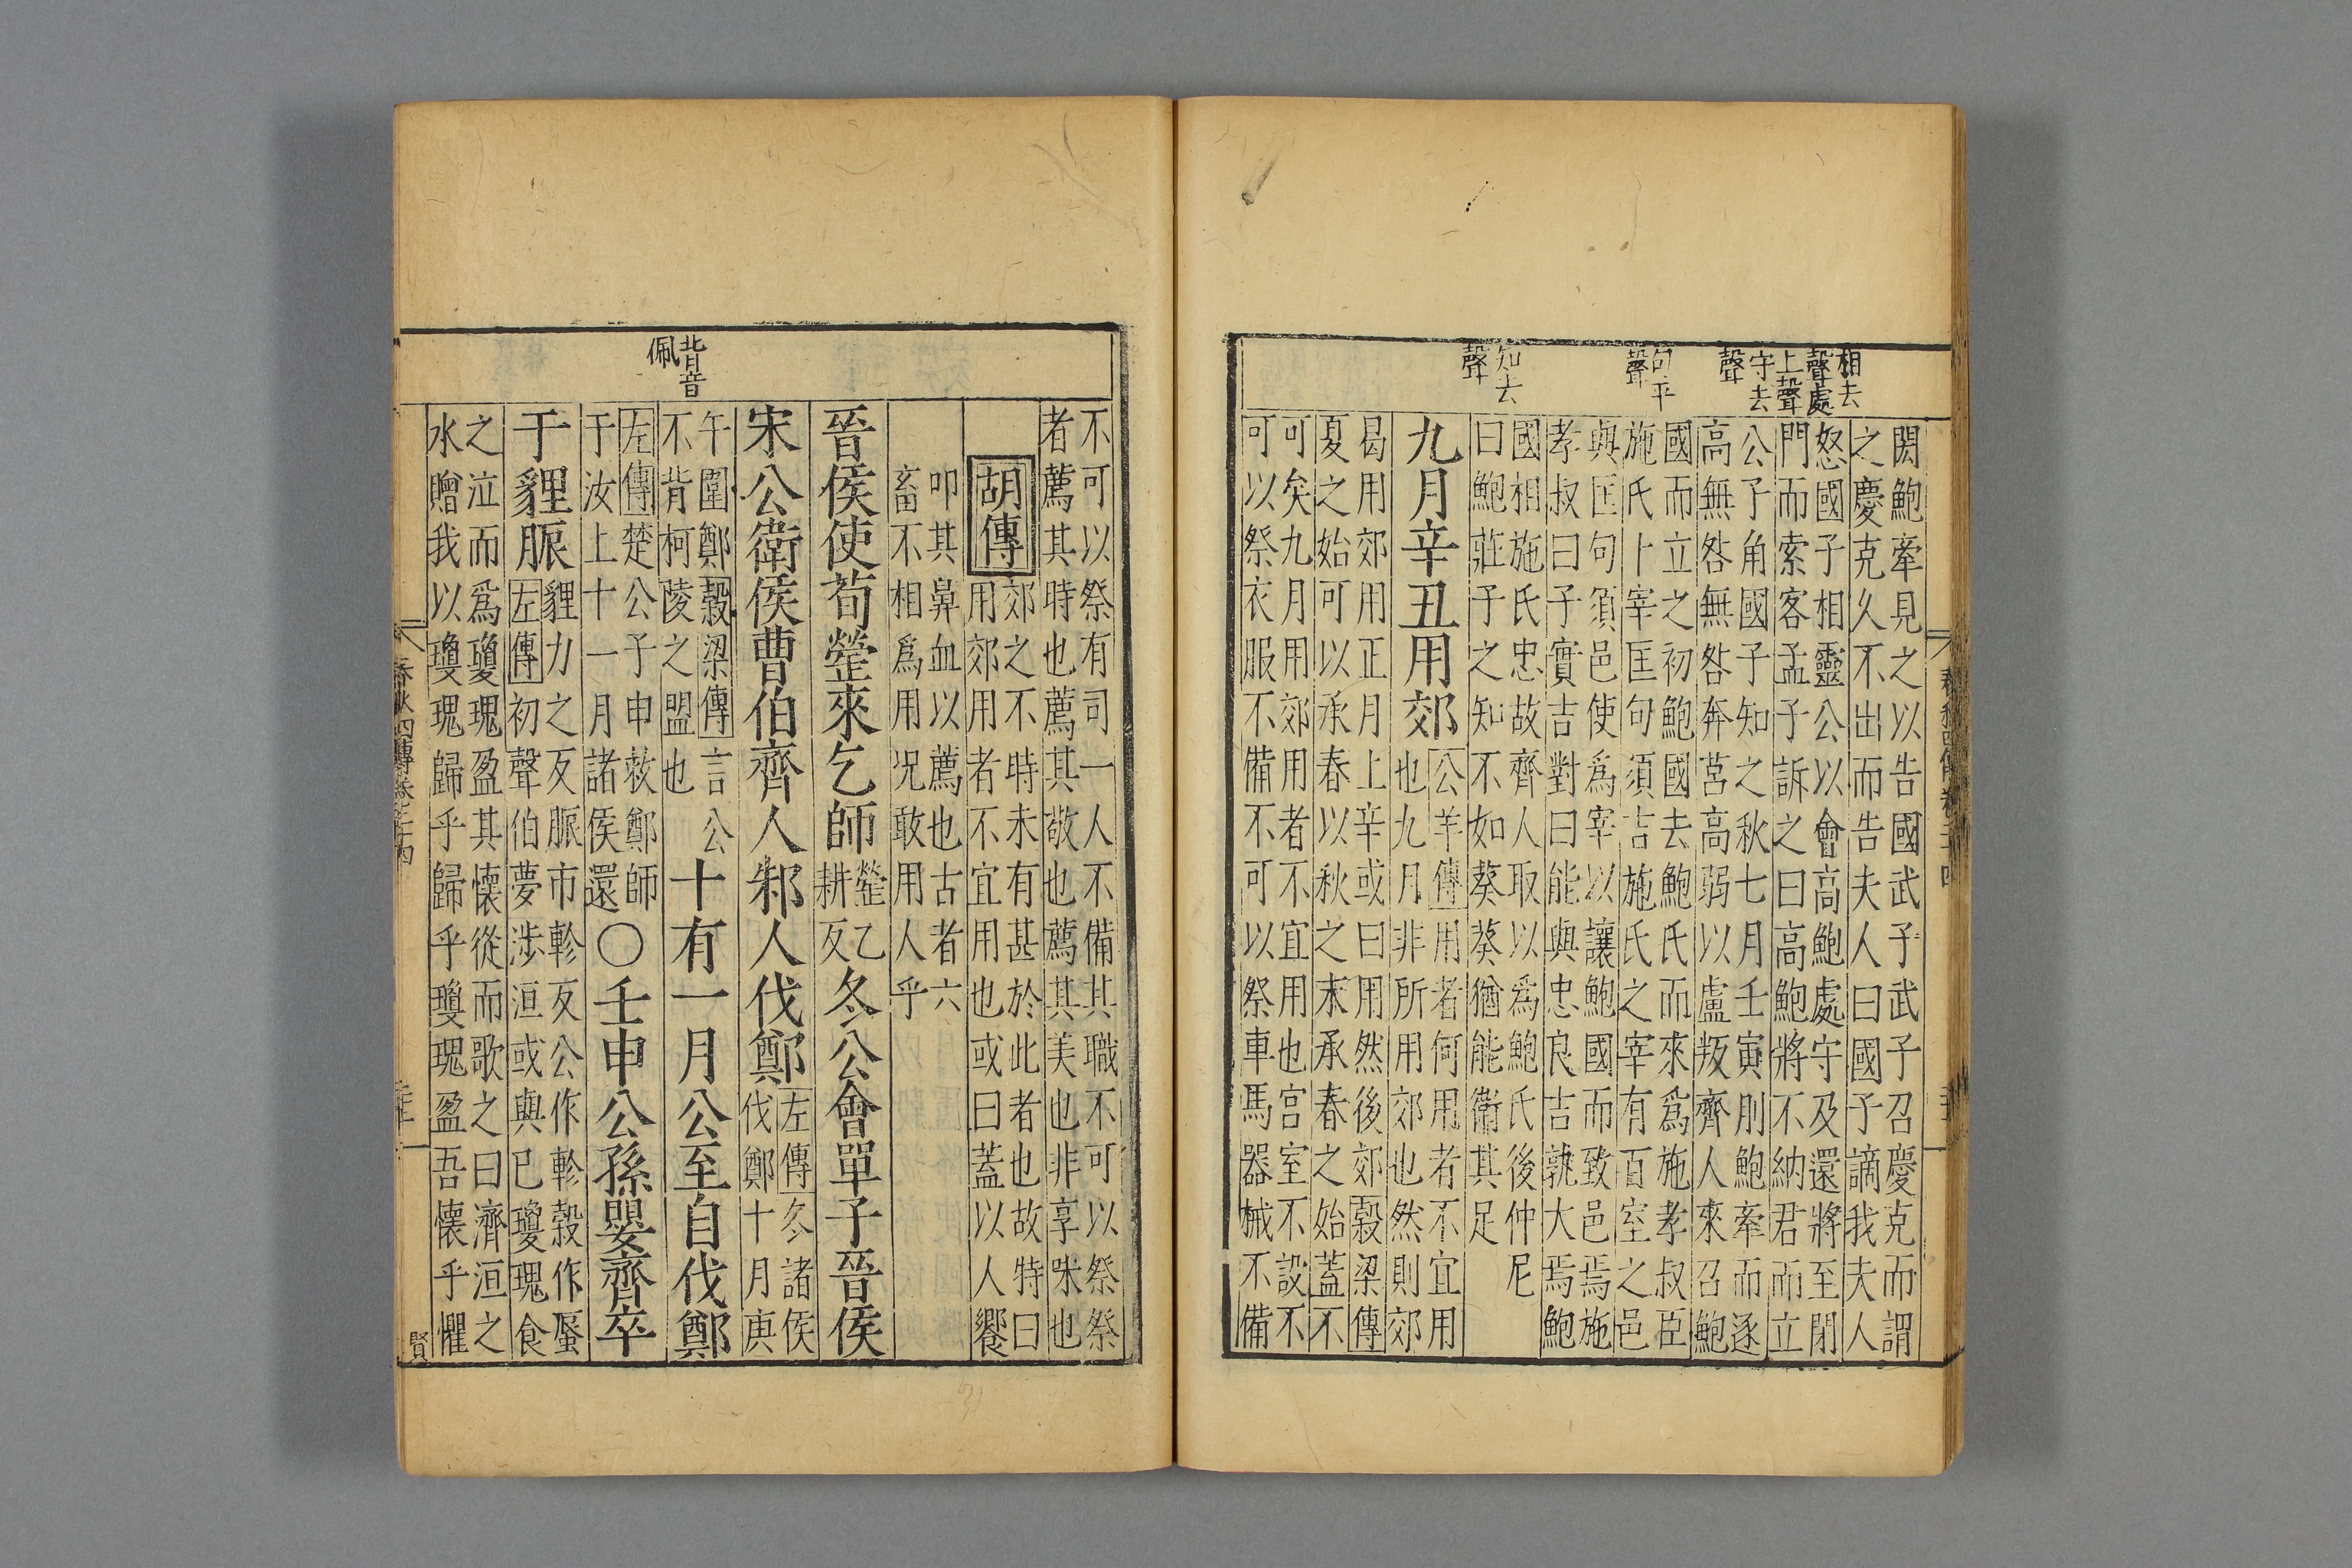 相去
聲處
上聲
守去
聲
句平
聲
知去
聲
閎鮑牽見之以告國武子武子召慶克而謂
之慶克久不出而告夫人曰國子謫我夫人
怒國子相靈公以會高鮑處守及還將至閉
門而索客孟子訴之曰高鮑將不納君而立
公子角國子知之秋七月壬寅刖鮑牽而逐
高無咎無咎奔莒高弱以盧叛齊人來召鮑
國而立之初鮑國去鮑氏而來爲施孝叔臣
施氏卜宰匡句須吉施氏之宰有百室之邑
與匡句須邑使爲宰以讓鮑國而致邑焉施
孝叔曰子實吉對曰能與忠良吉孰大焉鮑
國相施氏忠故齊人取以爲鮑氏後仲尼
曰鮑莊子之知不如葵葵猶能衛其足
九月辛丑用郊
公羊傳用者何用者不宜用
也九月非所用郊也然則郊
曷用郊用正月上辛或曰用然後郊穀梁傳
夏之始可以承春以秋之末承春之始蓋不
可矣九月用郊用者不宜用也宮室不設不
可以祭衣服不備不可以祭車馬器械不備
不可以祭有司一人不備其職不可以祭祭
者薦其時也薦其敬也薦其美也非享味也
胡傳
郊之不時未有甚於此者也故特曰
用郊用者不宜用也或曰蓋以人饗
叩其鼻血以薦也古者六
畜不相爲用况敢用人乎
晉侯使荀罃來乞師
罃乙
耕反
冬公會單子晉侯
宋公衛侯曹伯齊人邾人伐鄭
左傳冬諸侯
伐鄭十月庚
午圍鄭穀梁傳言公
不背柯陵之盟也
背音
佩
十有一月公至自伐鄭
左傳楚公子申救鄭師
于汝上十一月諸侯還
○壬申公孫嬰齊卒
于貍脤
貍力之反脤市軫反公作軫穀作蜃
左傳初聲伯夢涉洹或與已瓊瑰食
之泣而爲瓊瑰盈其懷從而歌之曰濟洹之
水贈我以瓊瑰歸乎歸乎瓊瑰盈吾懷乎懼
春秋四傳卷二十四
賢